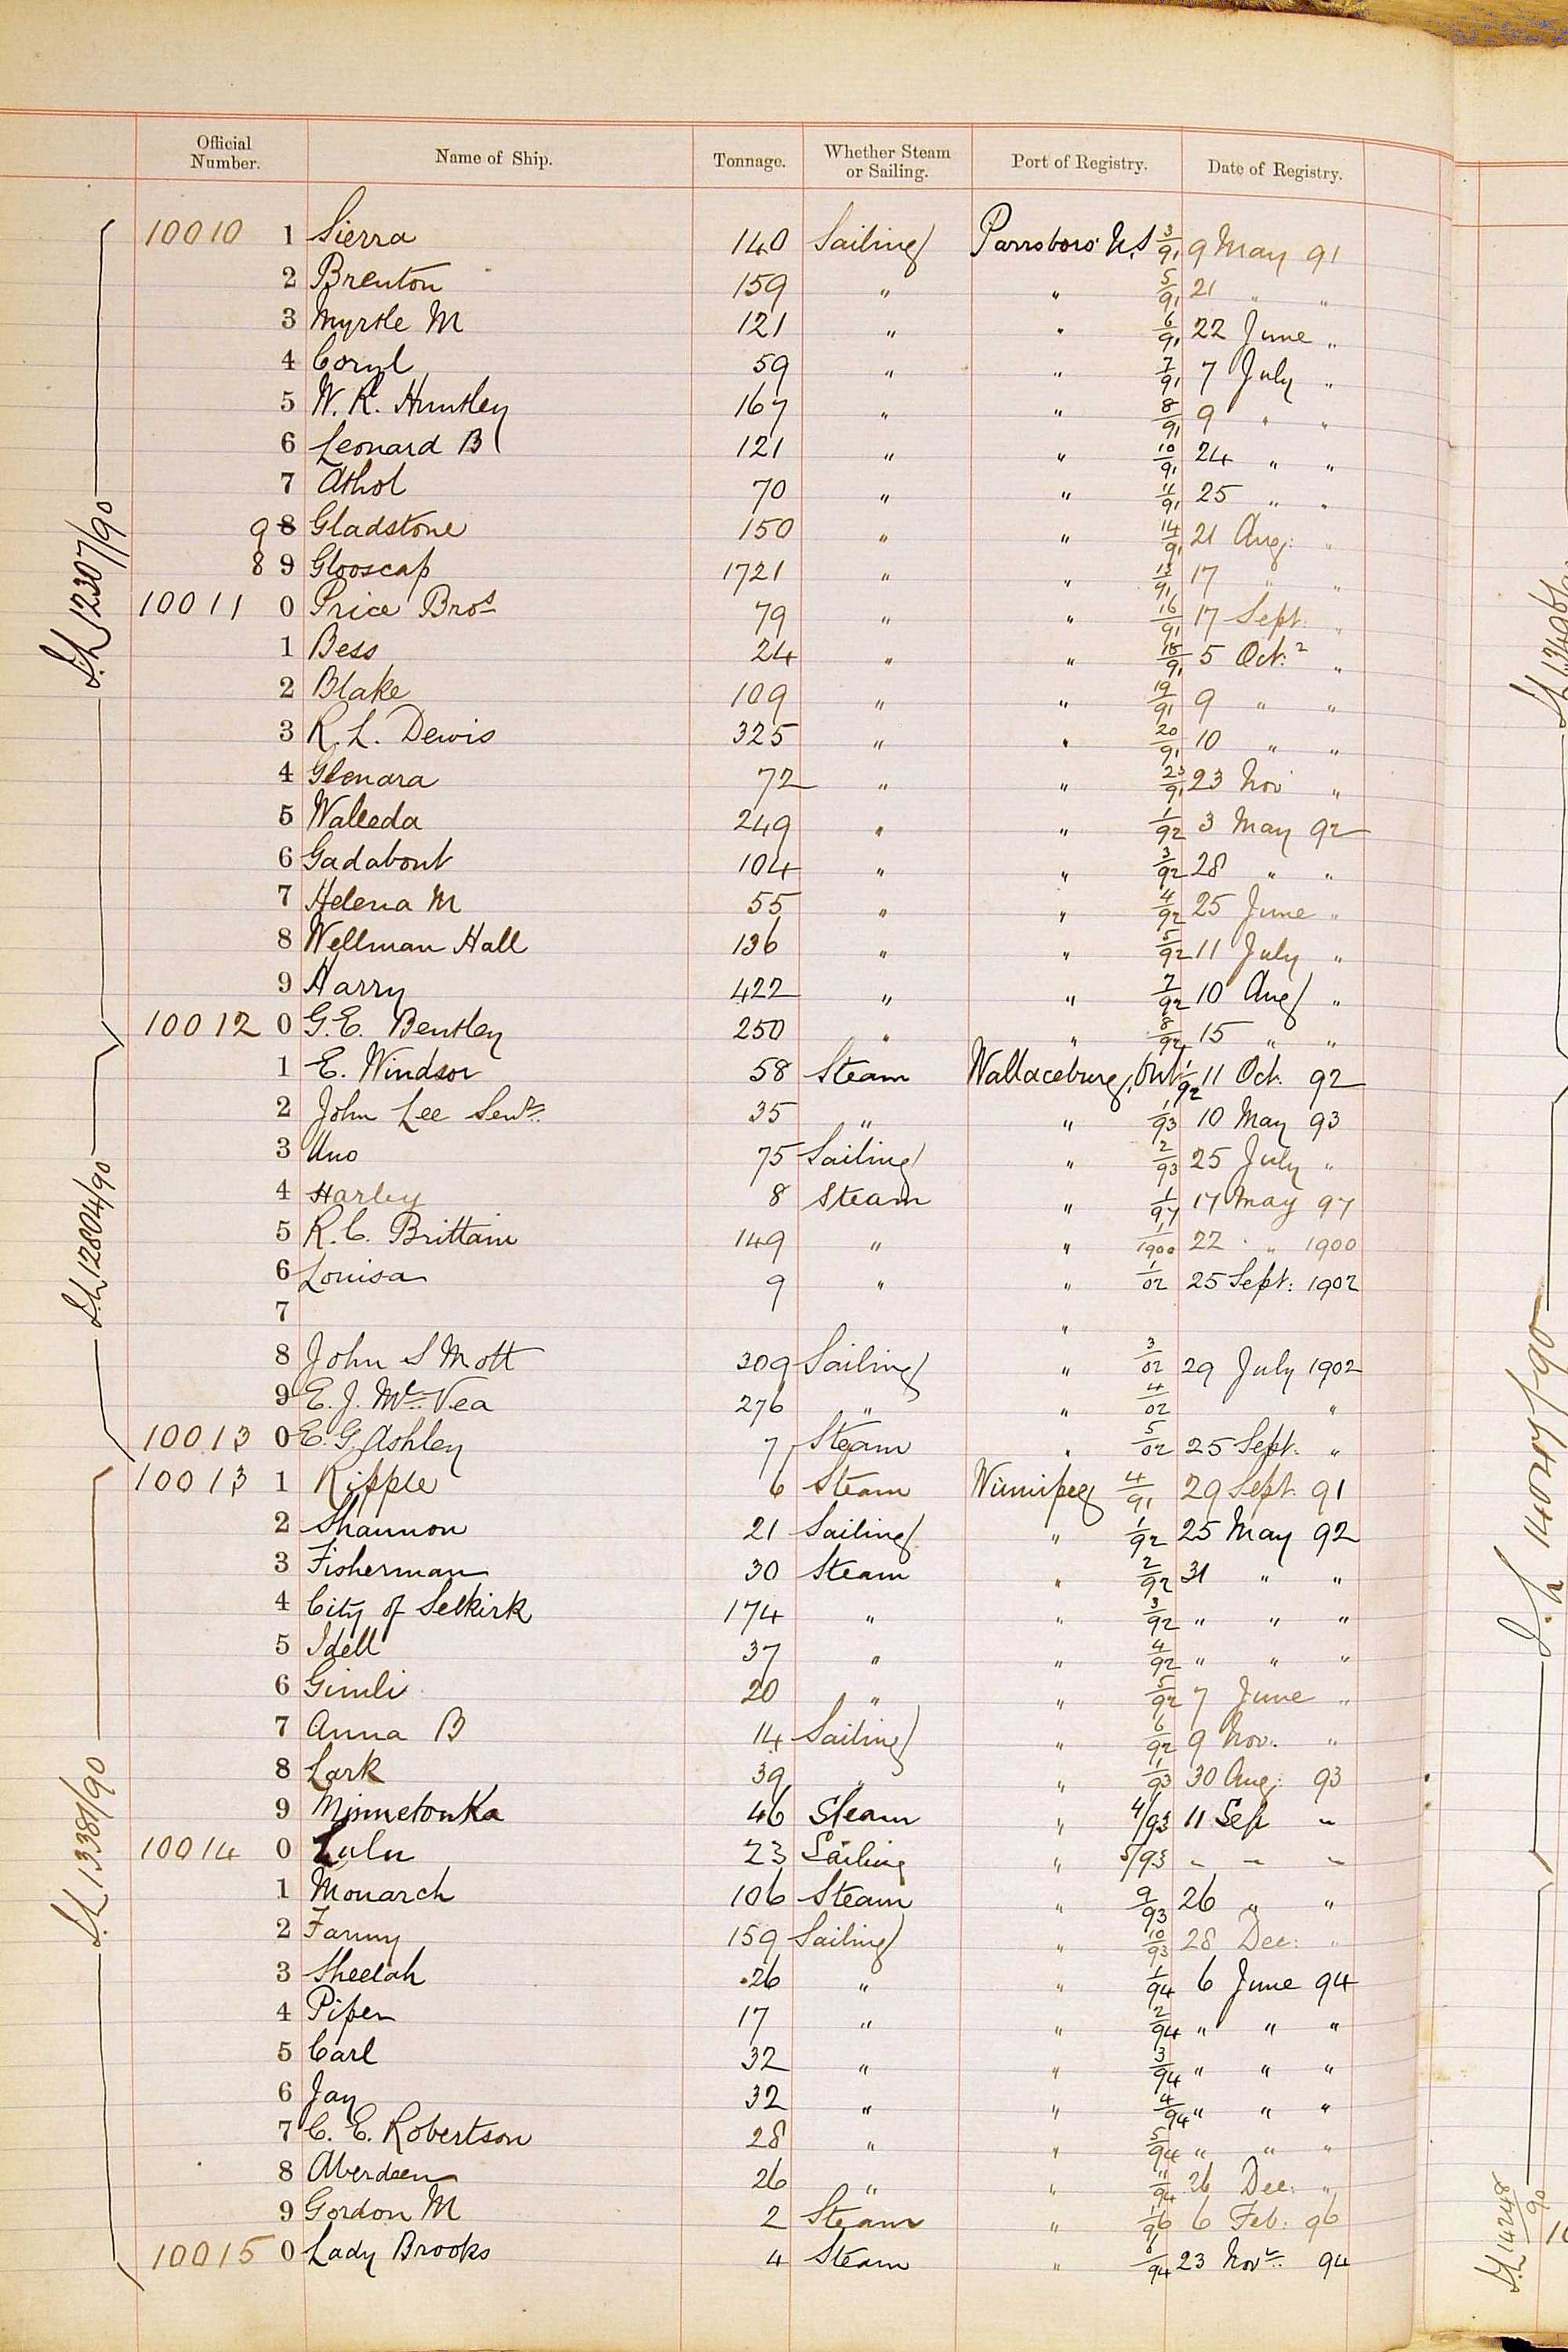 Official Number. Name of Ship. Tonnage. Whether Steam or Sailing. Port of Registry. Date of Registry.
10010 1 Sierra 140 Sailing Parrsboro' N.S 3/91 9 May 91
2 Brenton 159 " " 5/91 21 " "
3 Myrtle M 121 " " 6/91 22 June "
4 Coryl 59 " " 7/91 7 July "
5 W. K. Huntley 167 " " 8/91 9 " "
6 Leonard B 121 " " 10/91 24 " "
7 Athol 70 " " 11/91 25 " "
9 8 Gladstone 150 " " 14/91 21 Aug: "
8 9 Glooscap 1721 " " 13/91 17 " "
10011 0 Price Bros 79 " " 16/91 17 Sept: "
1 Bess 24 " " 18/91 5 Oct: "
2 Blake 109 " " 19/91 9 " "
3 R. L. Dewis 325 " " 20/91 10 " "
4 Glenara 72 " " 23/91 23 Nov "
5 Walleda 249 " " 1/92 3 May 92
6 Gadabout 104 " " 3/92 28 " "
7 Helena M 55 " " 4/92 25 June "
8 Wellman Hall 136 " " 5/92 11 July "
9 Harry 422 " " 7/92 10 Aug "
10012 0 G. E. Bentley 250 " " 8/92 15 " "
1 E. Windsor 58 Steam Wallaceburg, Ont 1/92 11 Oct. 92
2 John Lee Senr. 35 " " 1/93 10 May 93
3 Uno 75 Sailing " 2/93 25 July "
4 Harley 8 Steam " 1/97 17 May 97
5 R. C. Brittain 149 " " 1/1900 22 " 1900
6 Louisa 9 " " 1/02 25 Sept: 1902
7 "
8 John S Mott 309 Sailing " 3/02 29 July 1902
9 E. J. Mc Vea 276 " " 4/02 "
10013 0 E. G. Ashley 7 Steam " 5/02 25 Sept. "
10013 1 Ripple 6 Steam Winnipeg 4/91 29 Sept. 91
2 Shannon 21 Sailing " 1/92 25 May 92
3 Fisherman 30 Steam " 2/92 31 " "
4 City of Selkirk 174 " " 3/92 " " "
5 Idell 37 " " 4/92 " " "
6 Gimli 20 " " 5/92 7 June "
7 Anna B 14 Sailing " 6/92 9 Nov. "
8 Lark 39 " " 1/93 30 Aug: 93
9 Minnetonka 46 Steam " 4/93 11 Sep "
10014 0 Lulu 23 Sailing " 5/93 " " "
1 Monarch 106 Steam " 9/93 26 " "
2 Fanny 159 Sailing " 10/93 28 Dec: "
3 Sheelah 26 " " 1/94 6 June 94
4 Piper 17 " " 2/94 " " "
5 Carl 32 " " 3/94 " " "
6 Jay 32 " " 4/94 " " "
7 C. E. Robertson 28 " " 5/94 " " "
8 Aberdeen 26 " " 11/94 26 Dec: "
9 Gordon M 2 Steam " 1/96 6 Feb: 96
10015 0 Lady Brooks 4 Steam " 8/94 23 Novr. 94
12307/90
12804/90
13381/90
14047/90
14248/90